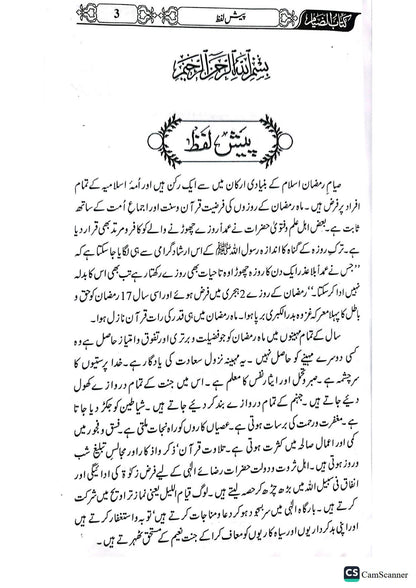 کتاب الصیام پیش لفظ 3
بسم اللہ الرحمن الرحیم
پیش لفظ
صیامِ رمضان اسلام کے بنیادی ارکان میں سے ایک رکن ہیں اور اُمۃ اسلامیہ کے تمام
افراد پر فرض ہیں۔ ماہ رمضان کے روزوں کی فرضیت قرآن وسنت اور اجماعِ اُمت کے ساتھ
ثابت ہے۔ بعض اہل علم وفتویٰ حضرات نے عمداً روزے چھوڑنے والے کو کافر ومرتد بھی قرار دیا
ہے۔ ترک روزہ کے گناہ کا اندازہ رسول اللہ ﷺ کے اس ارشاد گرامی سے ہی لگایا جا سکتا ہے کہ
’’جس نے عمداً بلا عذر ایک دن کا روزہ چھوڑا وہ تاحیات بھی روزے رکھتا رہے تب بھی اس کا بدلہ
نہیں ادا کر سکتا۔‘‘ رمضان کے روزے 2 ہجری میں فرض ہوئے اور اسی سال 17 رمضان کو حق و
باطل کا پہلا معرکہ غزوہ بدر الکبریٰ برپا ہوا۔ ماہ رمضان میں ہی قدر کی رات قرآن نازل ہوا۔
سال کے تمام مہینوں میں ماہ رمضان کو جو فضیلت و برتری اور تفوق وامتیاز حاصل ہے وہ
کسی دوسرے مہینے کو حاصل نہیں۔ یہ مہینہ نزول سعادت کی یادگار ہے۔ خدا پرستیوں کا
سرچشمہ ہے۔ صبر وتحمل اور ایثار نفس کا معلم ہے۔ اس میں جنت کے تمام دروازے کھول
دیئے جاتے ہیں۔ جہنم کے تمام دروازے بند کر دیئے جاتے ہیں۔ شیاطین کو جکڑ دیا جاتا
ہے۔ مغفرت ورحمت کی برسات ہوتی ہے۔ عصیاں کاروں کو راہ نجات ملتی ہے۔ فسق وفجور میں
کمی اور اعمال صالحہ میں کثرت ہوتی ہے۔ تلاوت قرآن، ذکر واذکار اور مجالسِ تبلیغ شب
وروز ہوتی ہیں۔ اہل ثروت ودولت حضرات رضائے الٰہی کے لیے فرض زکوٰۃ کی ادائیگی اور
انفاق فی سبیل اللہ میں بڑھ چڑھ کر حصہ لیتے ہیں۔ لوگ قیام اللیل یعنی نماز تراویح میں شرکت
کرتے ہیں۔ بارگاہِ الٰہی میں سربسجود ہو کر دعا ومناجات کرتے ہیں، توبہ واستغفار کرتے ہیں
اور اپنی بدکرداریوں اور سیاہ کاریوں کو معاف کرا کے جنت نعیم کے مستحق ٹھہرتے ہیں۔
CS CamScanner